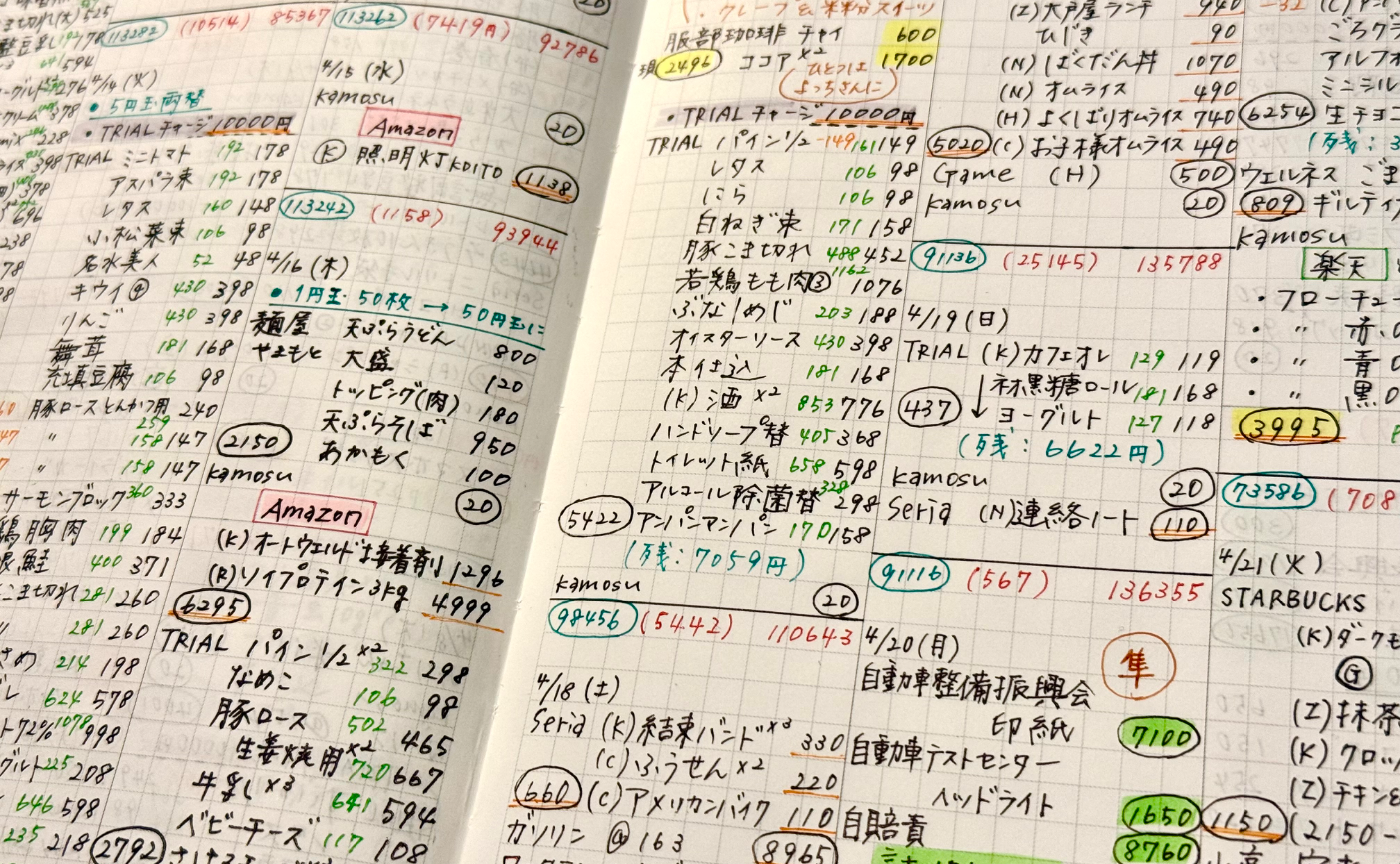 (10514) 85367
113282
4/14 (火)
• 5円玉両替
• TRIALチャージ 10000円
TRIAL ミニトマト 192 178
アスパラ束 192 178
レタス 160 148
小松菜束 106 98
名水美人 52 48
キウイ④ 430 398
りんご 430 398
舞茸 181 168
充填豆腐 106 98
豚ロースとんかつ用 259 240
〃 158 147
〃 158 147
サーモンブロック 360 333
鶏胸肉 199 184
銀鮭 400 371
こま切れ 281 260
281 260
214 198
624 578
1078 998
225 208
646 598
235 218
113262 (7419円) 92786
4/15 (水)
kamosu 20
Amazon
(K) 照明灯KOITO 1138
113242 (1158) 93944
4/16 (木)
• 1円玉・50枚 → 50円玉に
麺屋 天ぷらうどん 800
やまもと 大盛 120
トッピング(肉) 180
天ぷらそば 950
2150 あかもく 100
kamosu 20
Amazon
(K) オートウェルド接着剤 1296
(K) ソイプロテイン3kg 4999
6295
TRIAL パイン1/2 ×2 322 298
なめこ 106 98
豚ロース 502 465
生姜焼用×2 720 667
牛乳×3 641 594
ベビーチーズ 117 108
2792
クレープ&米粉スイーツ
服部珈琲 チャイ 600
現 2496 ココア×2 1700
(ひとつはよっちさんに)
• TRIALチャージ 10000円
TRIAL パイン1/2 -149 161 149
レタス 106 98
にら 106 98
白ねぎ束 171 158
豚こま切れ 488 452
若鶏もも肉③ 1162 1076
ぶなしめじ 203 188
オイスターソース 430 398
本仕込 181 168
(K) 酒×2 853 776
ハンドソープ替 405 368
トイレット紙 658 598
アルコール除菌替 328 298
5422 アンパンマンパン 170 158
(残:7059円)
kamosu 20
98456 (5442) 110643
4/18 (土)
Seria (K)結束バンド×3 330
(C)ふうせん×2 220
660 (C)アメリカンバイク 110
ガソリン @163 8965
(Z)大戸屋ランチ 940
ひじき 90
(N)ばくだん丼 1070
(N)オムライス 490
(H)よくばりオムライス 740
5020 (C)お子様オムライス 490
Game (H) 500
kamosu 20
91136 (25145) 135788
4/19 (日)
TRIAL (K)カフェオレ 129 119
↓ 黒糖ロール 181 168
437 ヨーグルト 127 118
(残:6622円)
kamosu 20
Seria (N)連絡ノート 110
91116 (567) 136355
4/20 (月)
隼
自動車整備振興会
印紙 7100
自動車テストセンター
ヘッドライト 1650
自賠責 8760
-32
アルフォ
ミニシル
6254 生チョコ
(残:
ウェルネス ごま
809 ギルティ
kamosu
楽天
・フローチュ
・〃 赤
・〃 青
・〃 黒
3995
73586 (708
4/21 (火)
STARBUCKS
(K)ダークモ
G
(Z)抹茶
(K)クロッ
(Z)チキン&
1150 (2150-